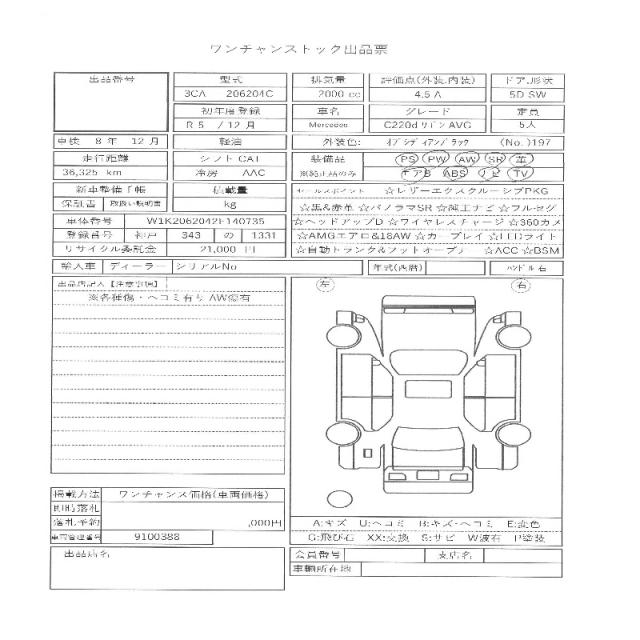 ワンチャンストック出品票
出品番号 型式 排気量 評価点(外装.内装) ドア.形状
3CA 206204C 2000 cc 4.5 A 5D SW
初年度登録 車名 グレード 定員
R 5 / 12 月 Mercedes C220d ワゴン AVG 5人
車検 8 年 12 月 軽油 外装色: オブシディアンブラック (No.)197
走行距離 シフト CAT 装備品 PS PW AW SR 革
36,325 km 冷房 AAC ※純正品のみ エアB ABS ナビ TV
新車整備手帳 積載量 セールスポイント ☆レザーエクスクルーシブPKG
保証書 取扱い説明書 kg ☆黒&赤革 ☆パノラマSR ☆純正ナビ ☆フルセグ
車体番号 W1K2062042F140735 ☆ヘッドアップD ☆ワイヤレスチャージ ☆360カメ
登録番号 神戸 343 の 1331 ☆AMGエアロ&18AW ☆カープレイ ☆LEDライト
リサイクル委託金 21,000 円 ☆自動トランク&フットオープナ ☆ACC ☆BSM
輸入車 ディーラー シリアルNo 年式(西暦) ハンドル 右
出品店記入【注意事項】 左 右
※各種傷・ヘコミ有り AW傷有
掲載方法 ワンチャンス価格(車両価格)
即時落札
落札予約 ,000円
A:キズ U:ヘコミ B:キズ・ヘコミ E:変色
車両管理番号 9100388
G:飛び石 XX:交換 S:サビ W波有 P塗装
出品店名 会員番号 支店名
車輌所在地